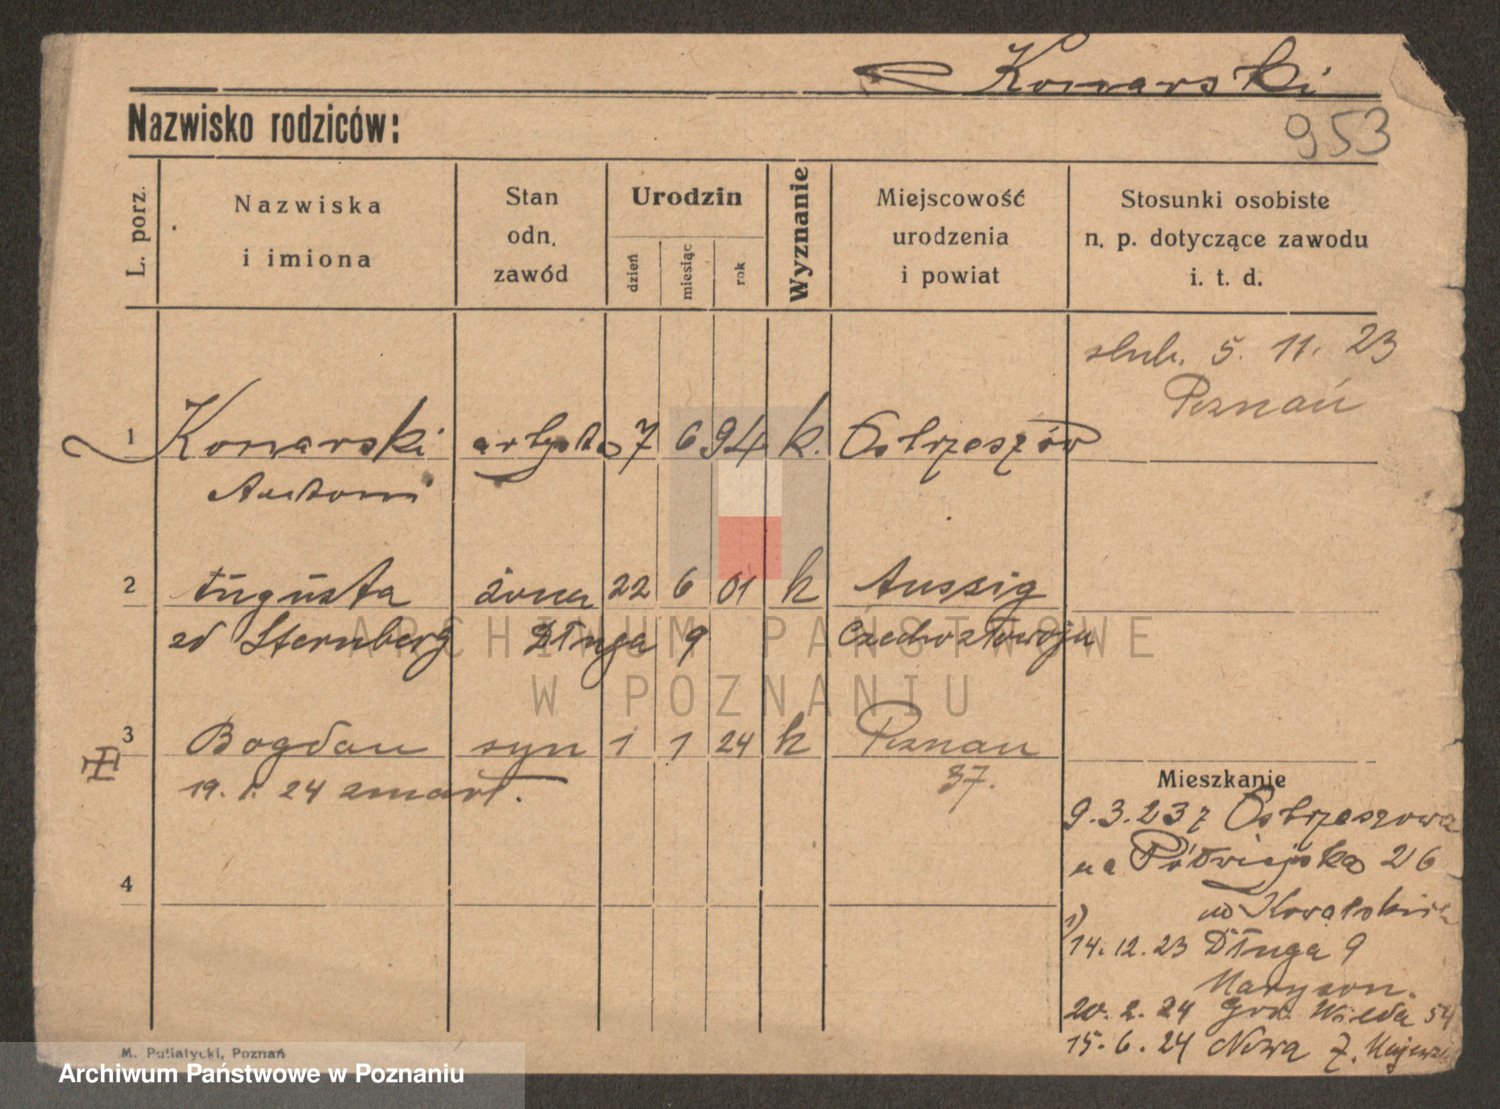 Konarski
Nazwisko rodziców:
953
L. porz.
Nazwiska
i imiona
Stan
odn.
zawód
Urodzin
dzień
miesiąc
rok
Wyznanie
Miejscowość
urodzenia
i powiat
Stosunki osobiste
n. p. dotyczące zawodu
i. t. d.
ślub. 5. 11. 23
Poznań
1 Konarski artysta 7 6 94 k. Ostrzeszów
Antoni
2 Augusta żona 22 6 01 k Aussig
zd Sternberg Długa 9 Czechosłowacja
3 Bogdan syn 1 1 24 k Poznań
19. 1. 24 zmarł. 37.
4
Mieszkanie
9.3.23 z Ostrzeszowa
na Półwiejska 26
1)
14. 12. 23 Długa 9
20. 2. 24 Wilda 54
15. 6. 24 Nowa 7.
ARCHIWUM PAŃSTWOWE
W POZNANIU
M. Putiatycki, Poznań
Archiwum Państwowe w Poznaniu